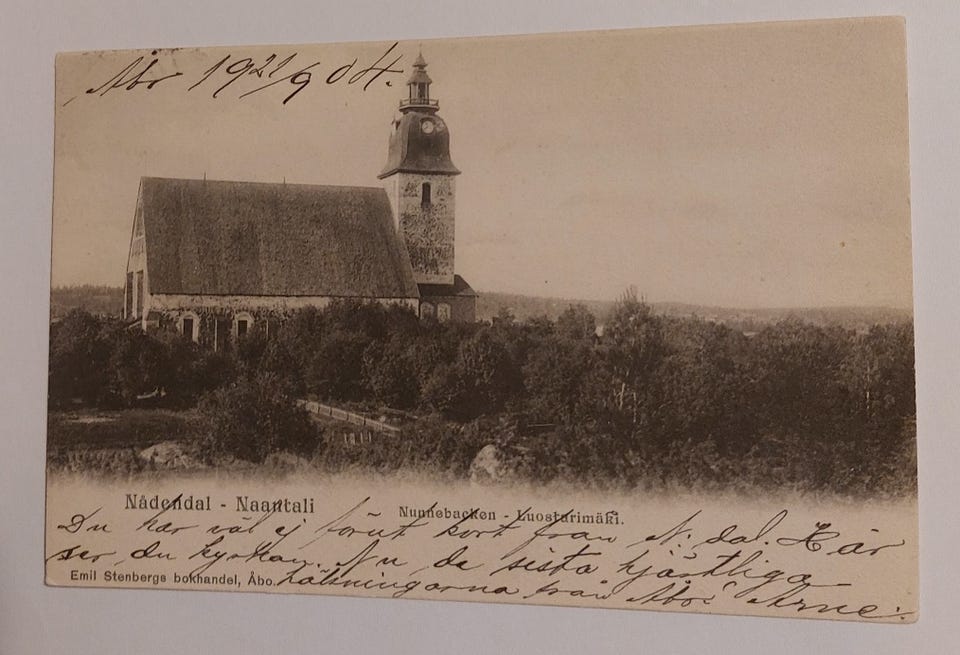 Åbo 19 21/9 04.
Nådendal - Naantali
Nunnebacken - Luostarimäki.
Du har väl ej förut kort från N:dal. Här
ser du kyrkan. Nu de sista hjärtliga
hälsningarna från Åbo! Arne.
Emil Stenbergs bokhandel, Åbo.